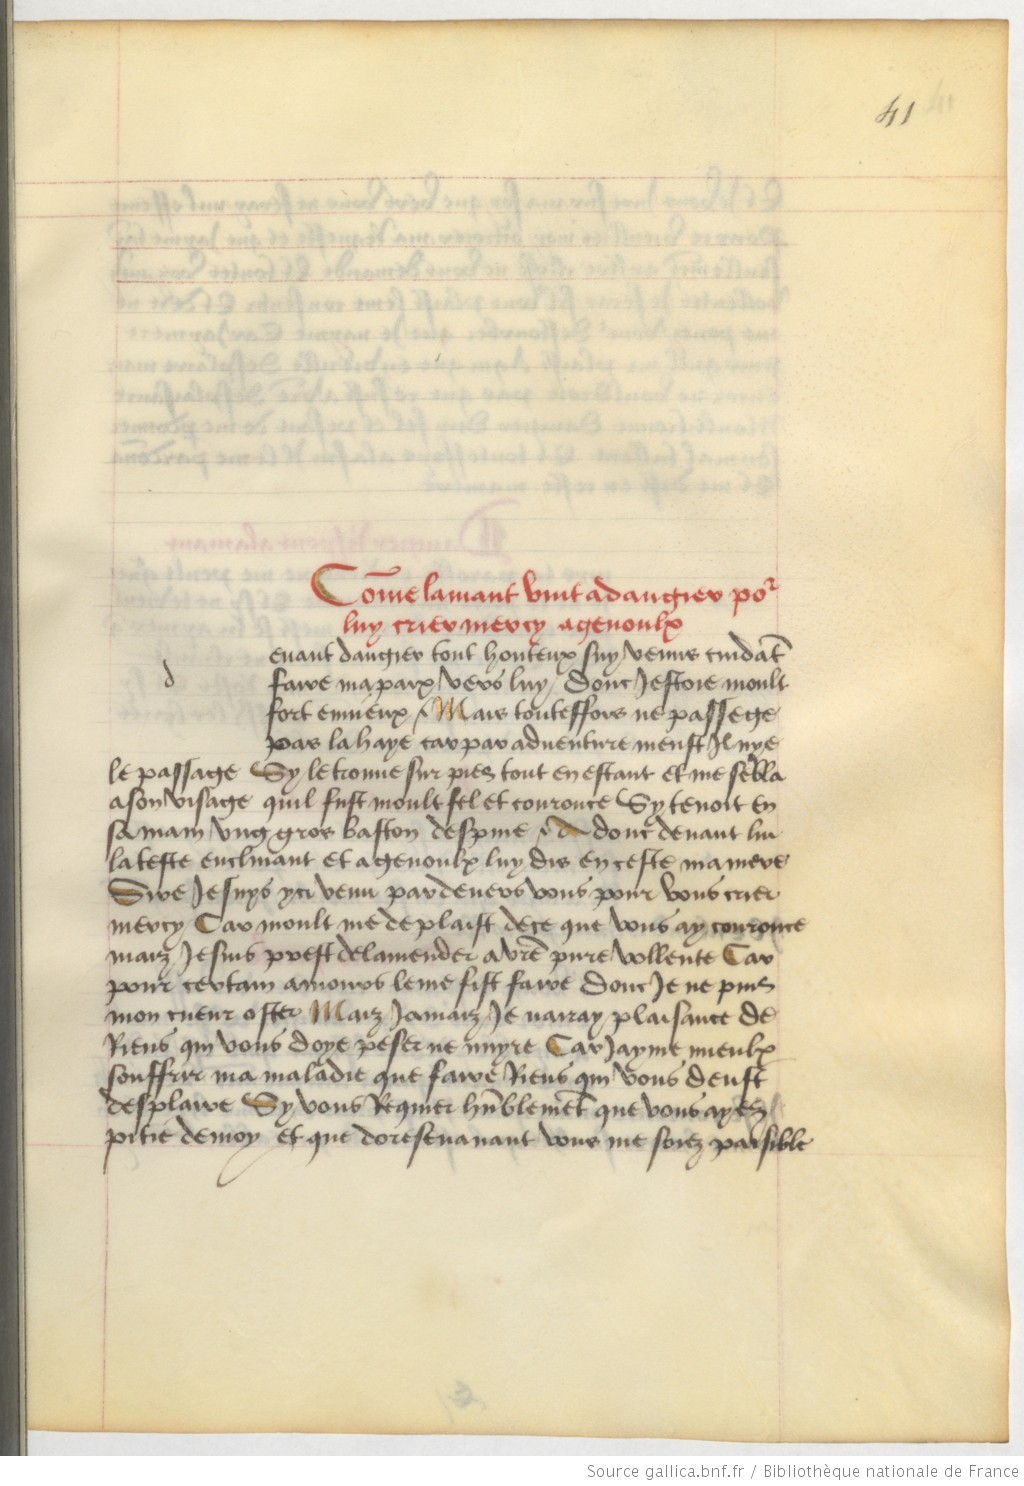 41
Co͞me lamant vint a dangier por
luy crier mercy a genoulx
d
euant dangier tout honteux suy venus cuida͞t
faire ma paix vers luy Donc Jestoie moult
fort ennieux / Mais touteffois ne passe ge
par la haye car par aduenture meust Il nye
le passage Sy le trouue sur piez tout en estant et me se͞bla
a son visage quil fust moult fel et couronce Sy tenoit en
sa main vng gros baston despine / A donc deuant lui
la teste enclinant et a genoulx luy dis en ceste maniere
Sire Je suys yci venu par deuers vous pour vous crier
mercy Car moult me deplaist de ce que vous ay couronce
maiz Je suis prest de lamender a vr͞e pure vollente Car
pour certain amours le me fist faire Donc Je ne puis
mon cueur oster Maiz Jamaiz Je nairay plaisance de
Riens qui vous doye peser ne nuyre Car Jayme mieulx
souffrir ma maladie que faire Riens qui vous deust
desplaire Sy vous Requier hu͞bleme͞t que vous ayez
pitie de moy et que doresenauant vous me soiez paisible
Source gallica.bnf.fr / Bibliothèque nationale de France